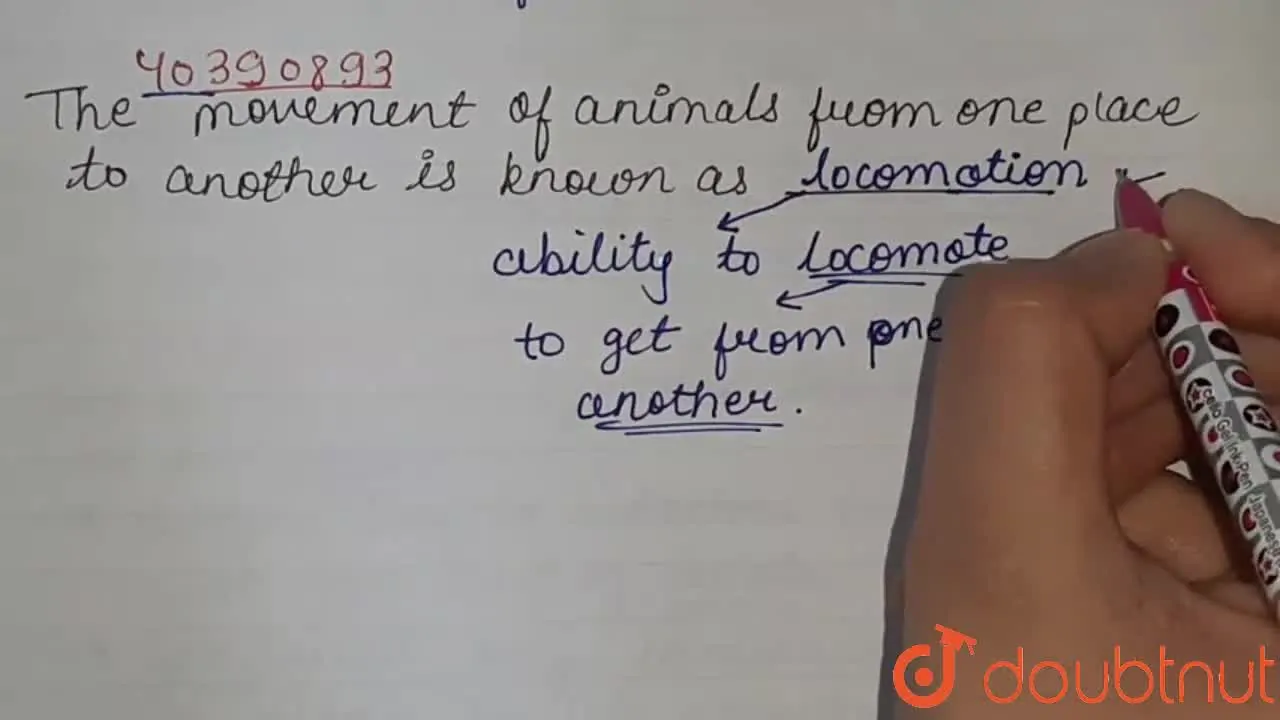 40390893
The movement of animals from one place
to another is known as locomotion
ability to locomote
to get from one
another.
Cello Gel Ink Pen Japanese
doubtnut